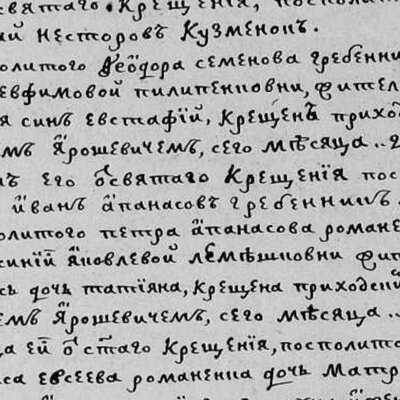 святаго Крещенїя, посполит
ий Несторовъ Кузменоп.
политого Ѳеѡдора семенова гребенни
евфимовой пилипенповни, фител
я синъ евстафїй, Крещенъ приход
емъ Ярошевичемъ, сего мѣсяца..2
нъ его ѿ святаго Крещенїя пос
иванъ апанасовъ гребенникъ.
политого петра апанасова романе
синїй яковлевой лемѣшповни фит
сь дочь татїяна, крещена приходсн
емъ Ярошевичемъ, сего мѣсяца...
ца ей ѿ стаго Крещенїя, посполито
са евсеева романенка дочь матр